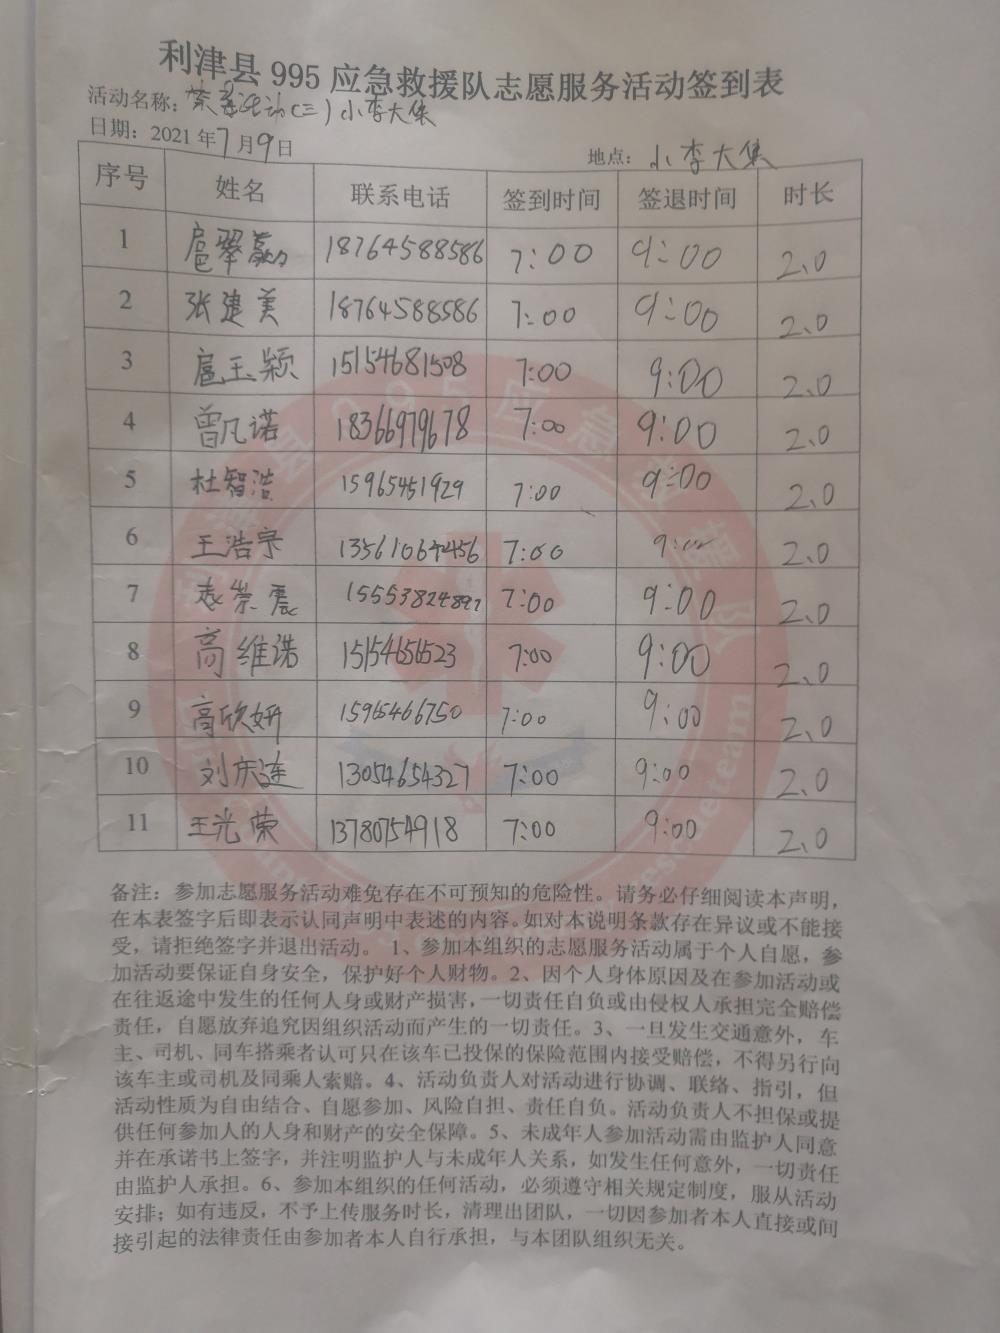 利津县995应急救援队志愿服务活动签到表
活动名称: 活动(三)小李大集
日期: 2021年7月9日
地点: 小李大集
序号 姓名 联系电话 签到时间 签退时间 时长
1 扈翠 18764588586 7:00 9:00 2.0
2 张建美 18764588586 7:00 9:00 2.0
3 扈玉颖 15154681508 7:00 9:00 2.0
4 曾凡诺 18366979678 7:00 9:00 2.0
5 杜智浩 15965451929 7:00 9:00 2.0
6 王浩宇 7:00 9:00 2.0
7 崇震 7:00 9:00 2.0
8 高维诺 15154656523 7:00 9:00 2.0
9 高欣妍 15965466750 7:00 9:00 2.0
10 刘庆莲 13054654327 7:00 9:00 2.0
11 王光荣 13780754918 7:00 9:00 2.0
备注：参加志愿服务活动难免存在不可预知的危险性。请务必仔细阅读本声明，
在本表签字后即表示认同声明中表述的内容。如对本说明条款存在异议或不能接
受，请拒绝签字并退出活动。 1、参加本组织的志愿服务活动属于个人自愿，参
加活动要保证自身安全，保护好个人财物。2、因个人身体原因及在参加活动或
在往返途中发生的任何人身或财产损害，一切责任自负或由侵权人承担完全赔偿
责任，自愿放弃追究因组织活动而产生的一切责任。3、一旦发生交通意外，车
主、司机、同车搭乘者认可只在该车已投保的保险范围内接受赔偿，不得另行向
该车主或司机及同乘人索赔。4、活动负责人对活动进行协调、联络、指引，但
活动性质为自由结合、自愿参加、风险自担、责任自负。活动负责人不担保或提
供任何参加人的人身和财产的安全保障。5、未成年人参加活动需由监护人同意
并在承诺书上签字，并注明监护人与未成年人关系，如发生任何意外，一切责任
由监护人承担。6、参加本组织的任何活动，必须遵守相关规定制度，服从活动
安排；如有违反，不予上传服务时长，清理出团队，一切因参加者本人直接或间
接引起的法律责任由参加者本人自行承担，与本团队组织无关。